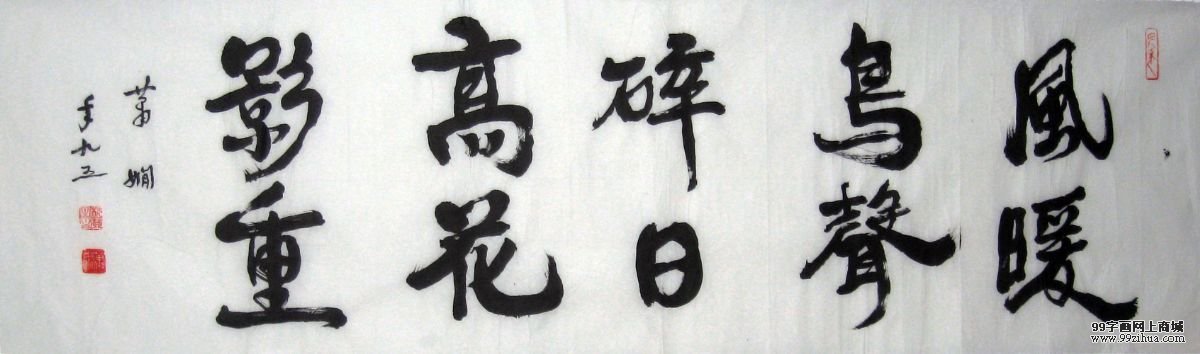 風暖
鳥聲
碎日
高花
影重
萧嫻
年九五
99字画网上商城
www.99zihua.com